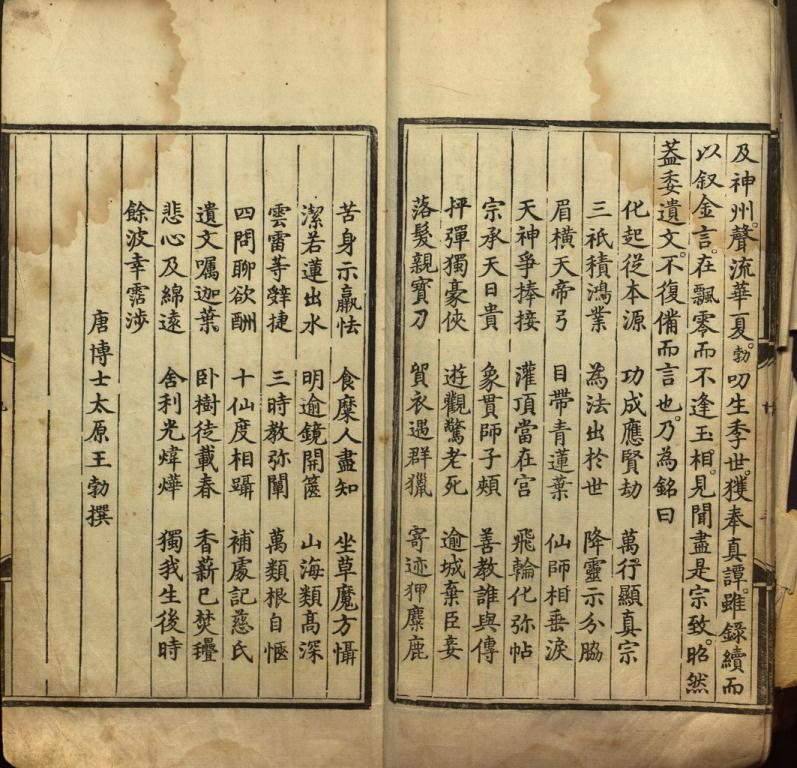 及神州。聲流華夏。勃叨生季世。獲奉真譚。雖錄續而
以叙金言。在飄零而不逢玉相。見聞盡是宗致。昭然
葢委遺文。不復備而言也。乃為銘曰
化起從本源 功成應賢劫 萬行顯真宗
三祇積鴻業 為法出於世 降靈示分脇
眉橫天帝弓 目帶青蓮葉 仙師相垂淚
天神爭捧接 灌頂當在宮 飛輪化弥帖
宗承天日貴 象貫師子頰 善教誰與傳
抨彈獨豪俠 遊觀驚老死 逾城棄臣妾
落髮親寶刀 貿衣遇群獵 寄迹狎麋鹿
苦身示羸怯 食糜人盡知 坐草魔方懾
潔若蓮出水 明逾鏡開篋 山海類高深
雲雷等辯捷 三時教弥闡 萬類根自愜
四問聊欲酬 十仙度相躡 補處記慈氏
遺文囑迦葉 卧樹徒載春 香薪已焚㲲
悲心及綿遠 舍利光煒燁 獨我生後時
餘波幸霑涉
唐博士太原王勃撰